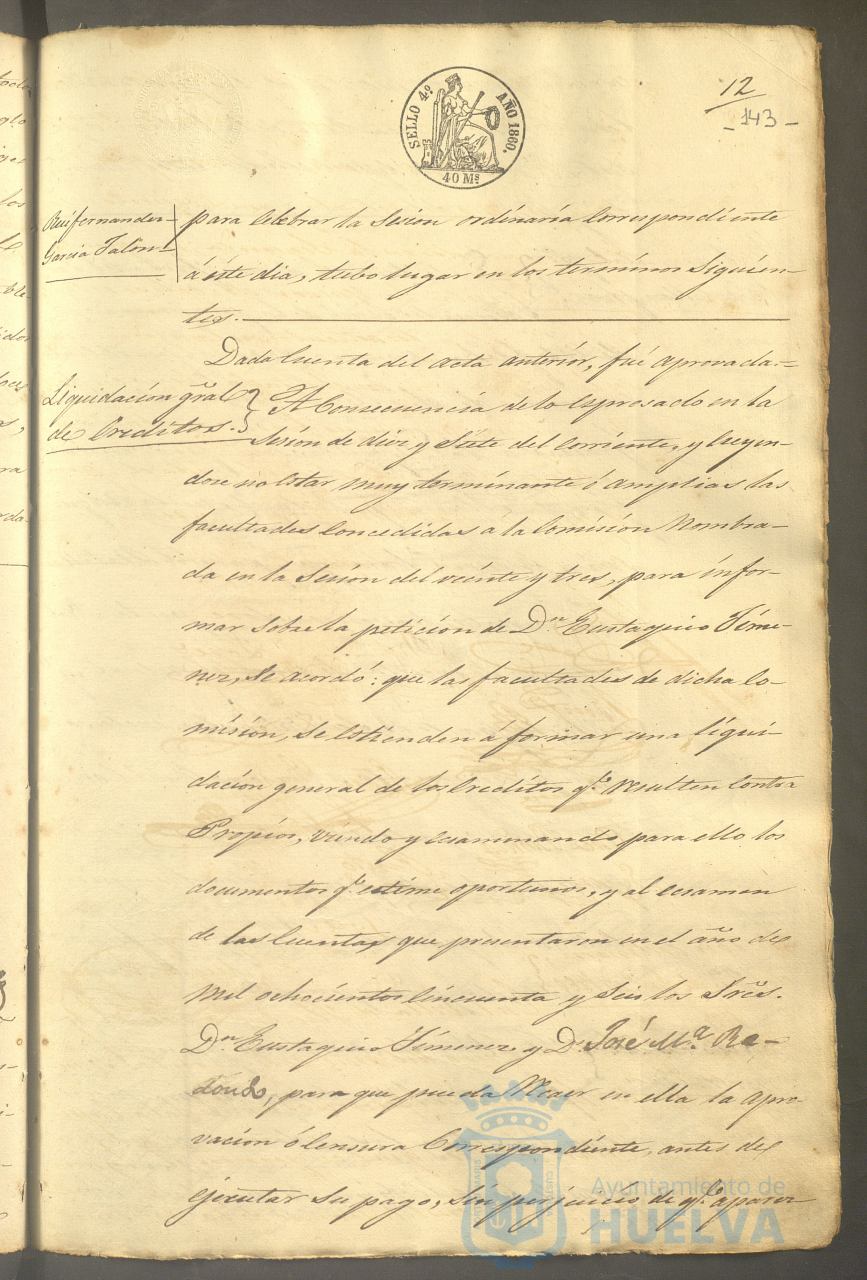 SELLO 4º AÑO 1860.
40 Ms
12
- 143 -
Ruifernandez
Garcia Jalon
para celebrar la Sesion ordinaria correspondiente
á éste dia, tubo lugar en los terminos siguien-
tes.
Dada cuenta del acta anterior, fué aprovada.=
Liquidación gral
de Creditos.
A consecuencia de lo espresado en la
Sesion de diez y siete del corriente, y creyen-
dose no estar muy terminante ó amplias las
facultades concedidas á la Comision nombra-
da en la Sesion del veinte y tres, para infor-
mar sobre la peticion de Dn Eustaquio Jime-
nez, se acordó: que las facultades de dicha Co-
mision, se estienden á formar una liqui-
dación general de los Creditos q.e resulten contra
Propios, viendo y ecsaminando para ello los
documentos q.e estime oportunos, y al ecsamen
de las Cuentas que presentaron en el año de
mil ochocientos cincuenta y seis los Sres.
Dn Eustaquio Jimenez y D. José Mª Re-
, para que pueda recaer en ella la apro-
vacion ó censura correspondiente, antes de
ejecutar su pago, sin perjuicio de q.e aparez
Ayuntamiento de
HUELVA